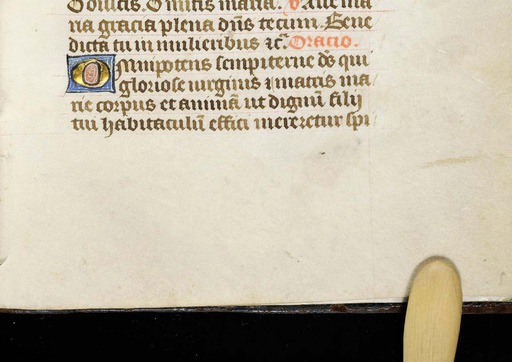 O dulcis. O mitis maria. v Aue ma
ria gracia plena dn̄s tecum. Bene
dicta tu in mulieribus ⁊c̄. Oracio.
Omnipotens sempiterne ds̄ qui
gloriose uirginis ⁊ matris ma
rie corpus et animā ut dignū filij
tui habitaculū effici mereretur sp̄i